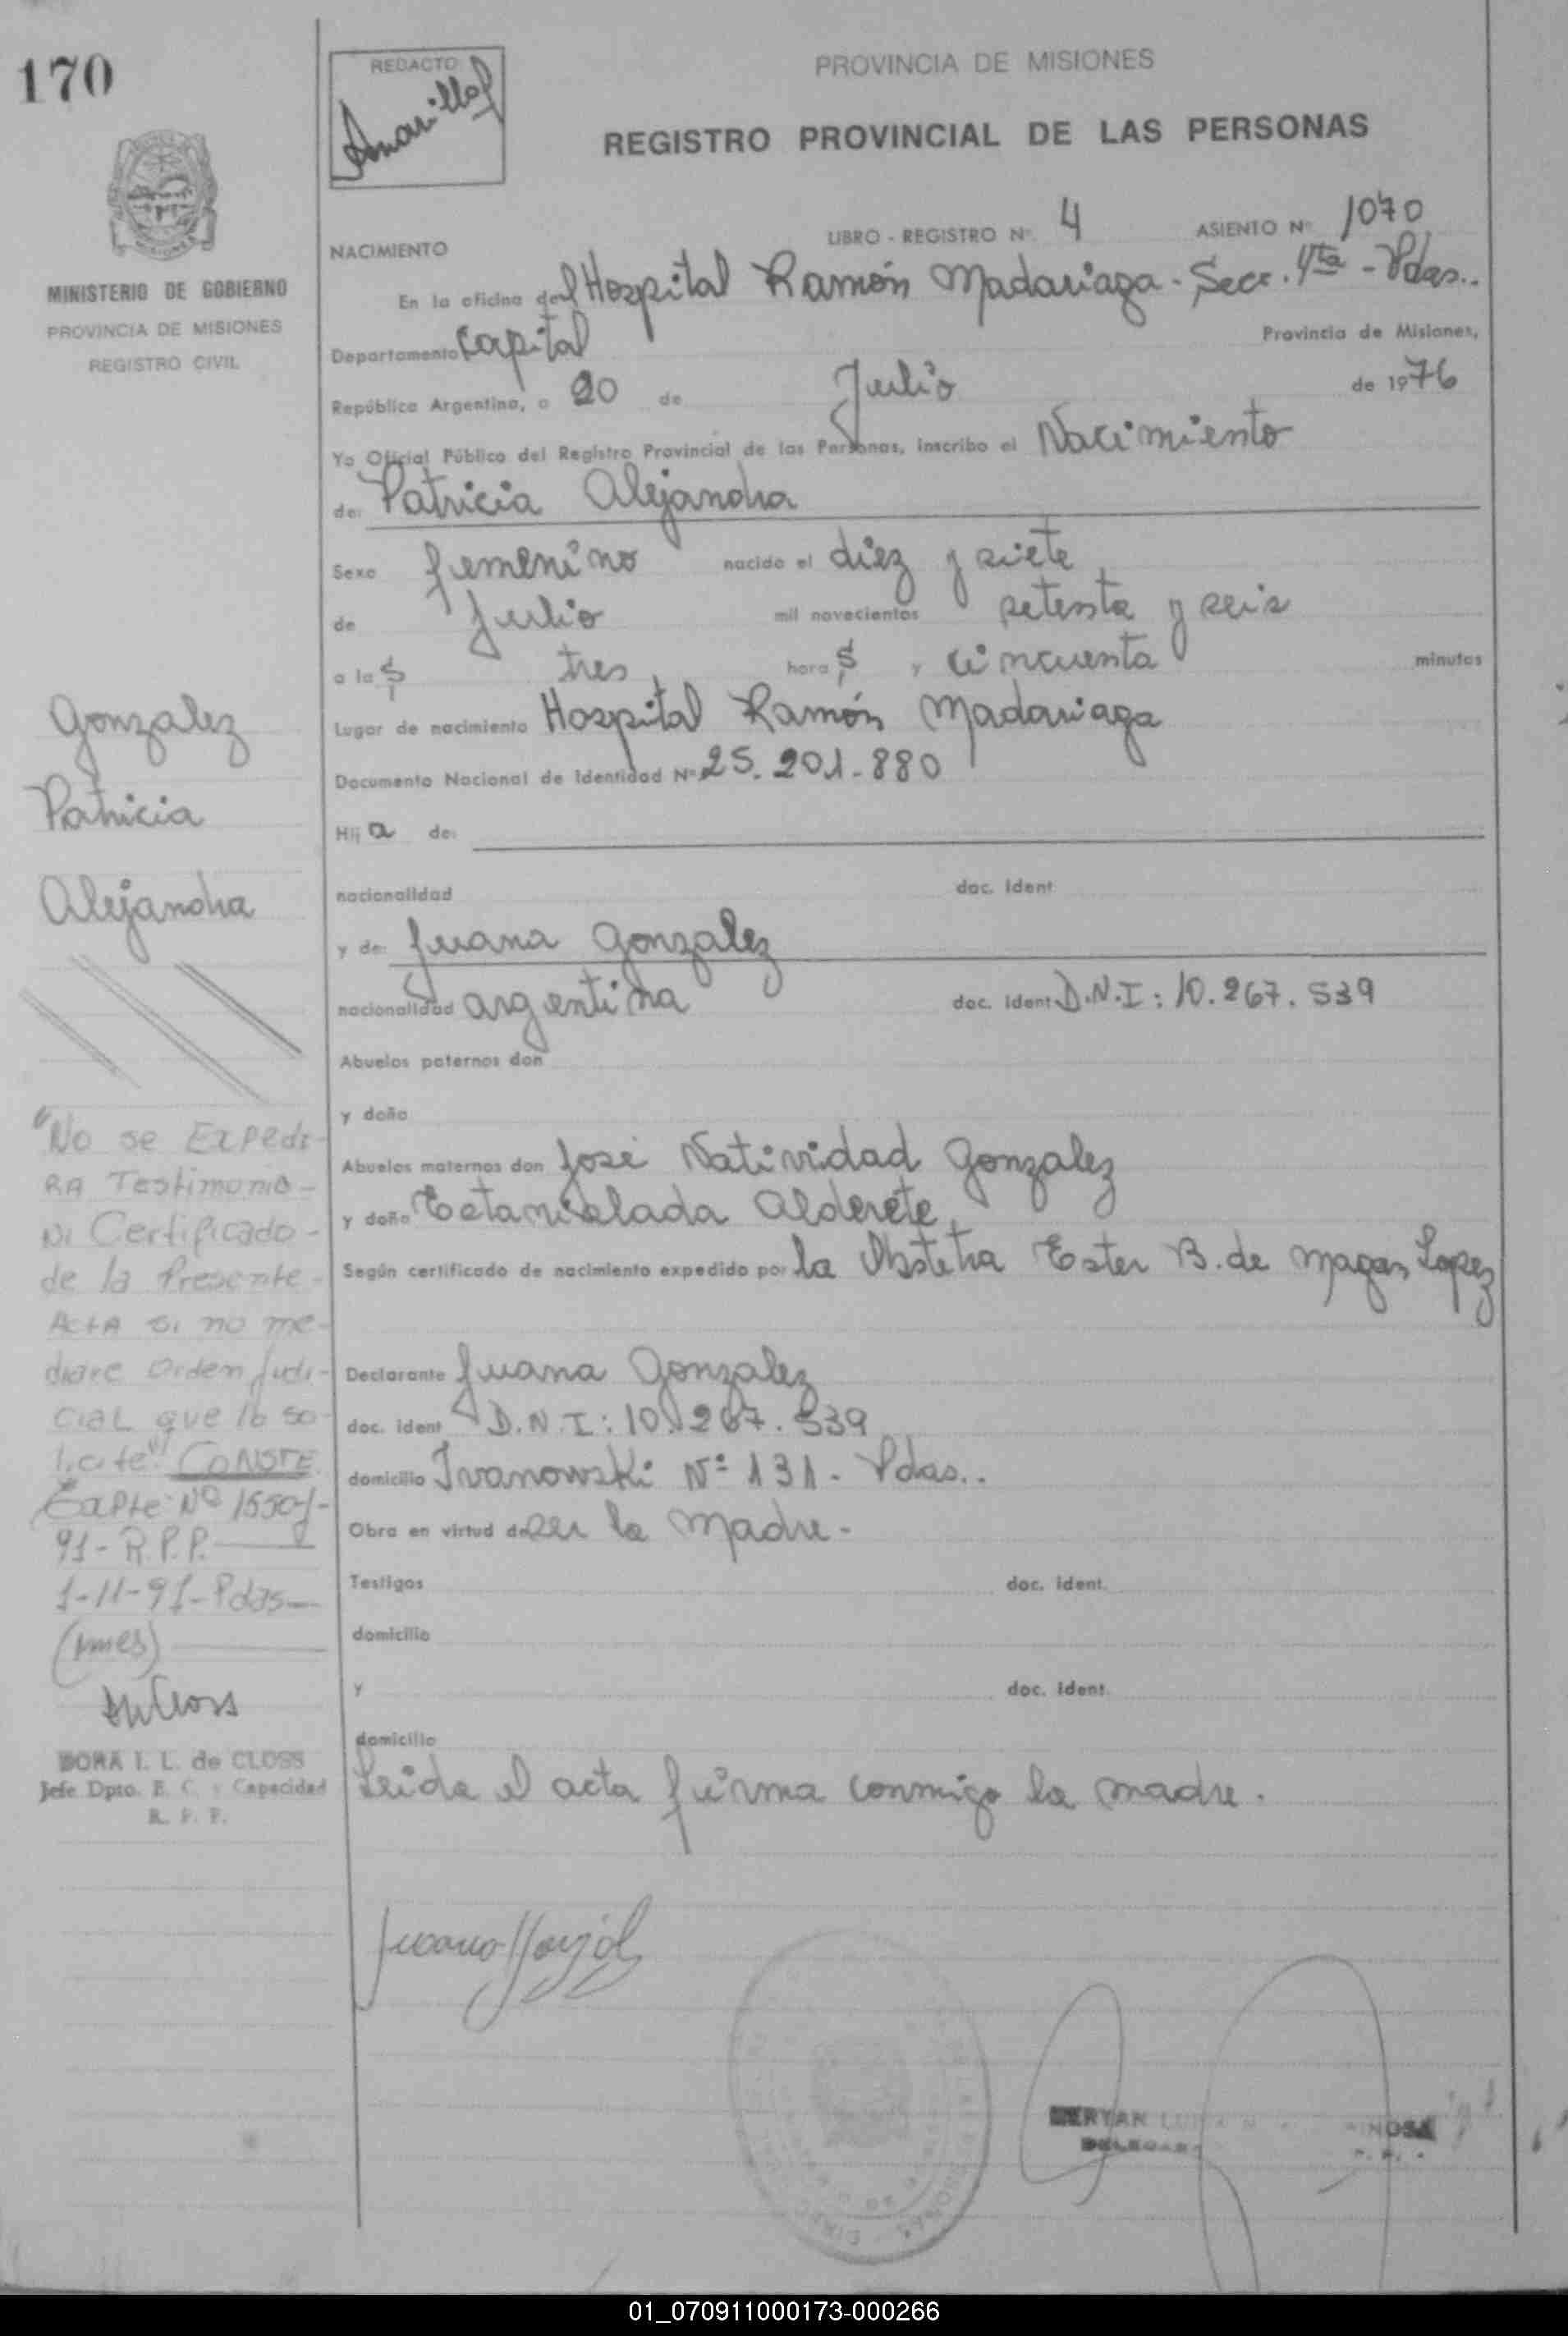 170
REDACTO
PROVINCIA DE MISIONES
REGISTRO PROVINCIAL DE LAS PERSONAS
MINISTERIO DE GOBIERNO
PROVINCIA DE MISIONES
REGISTRO CIVIL
NACIMIENTO
LIBRO - REGISTRO N° 4 ASIENTO N° 1070
En la oficina del Hospital Ramón Madariaga - Secc. 4ta - Pdas..
Departamento Capital Provincia de Misiones,
República Argentina, a 20 de Julio de 1976
Yo Oficial Público del Registro Provincial de las Personas, inscribo el Nacimiento
de: Patricia Alejandra
Sexo femenino nacido el diez y siete
de Julio mil novecientos setenta y seis
a las tres horas y cincuenta minutos
Lugar de nacimiento Hospital Ramón Madariaga
Documento Nacional de Identidad N° 25.201.880
Hija de:
nacionalidad doc. Ident
y de: Juana Gonzalez
nacionalidad argentina doc. Ident D.N.I: 10.267.539
Abuelos paternos don
y doña
Abuelos maternos don José Natividad Gonzalez
y doña Estanislada Alderete
Según certificado de nacimiento expedido por la Obstetra Ester B. de Lopez
Declarante Juana Gonzalez
doc. ident D.N.I: 10.267.539
domicilio Ivanowski N° 131 - Pdas..
Obra en virtud de ser la madre -
Testigos doc. ident.
domicilio
y doc. ident.
domicilio
Leida el acta firma conmigo la madre.
Gonzalez
Patricia
Alejandra
"No se Expedi-
RA Testimonio -
Ni Certificado -
de la Presente -
Acta si no me-
diare Orden Judi-
cial que lo so-
licite" CONSTE
Expte Nº 1550-
91 - R.P.P.
1-11-91 - Pdas
DORA I. L. de CLOSS
Jefe Dpto. E. C. y Capacidad
R. P. P.
01_070911000173-000266